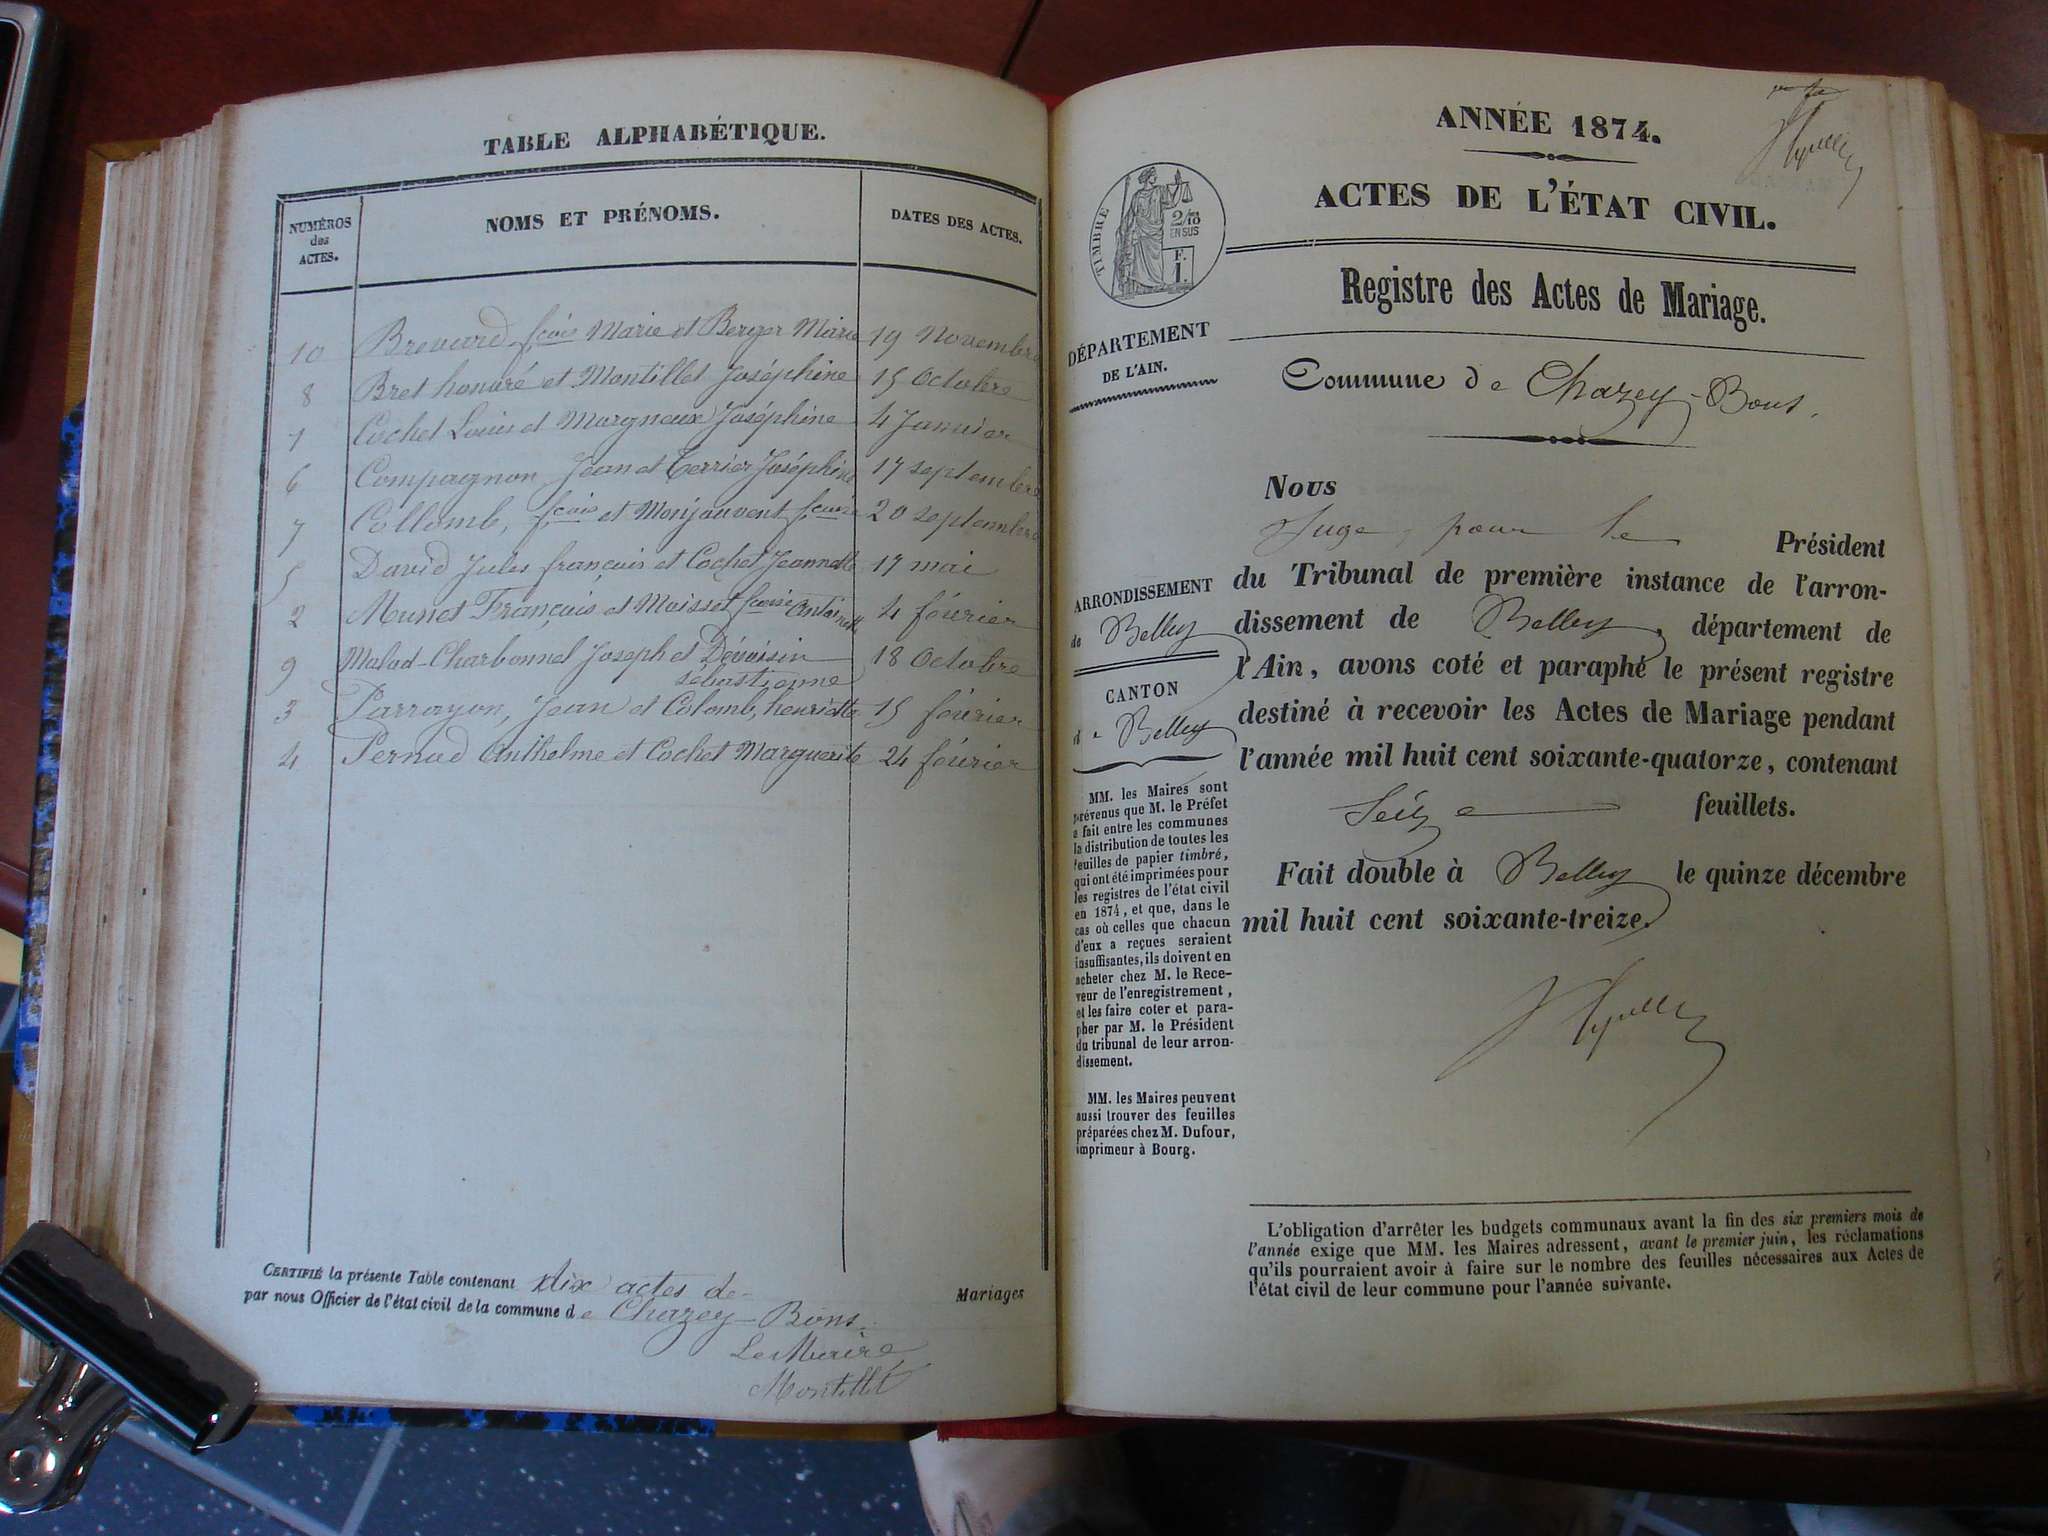 TABLE ALPHABÉTIQUE.
NUMÉROS des ACTES.
NOMS ET PRÉNOMS.
DATES DES ACTES.
10 Brevard fçois Marie et Berger Marie 19 Novembre
8 Bret honoré et Montillet Joséphine 15 Octobre
1 Cochet Louis et Margneux Joséphine 4 Janvier
6 Compagnon Jean et Terrier Joséphine 17 septembre
7 Collomb, fçois et Monjouvent fçoise 20 septembre
5 David Jules françois et Cochet Jeannette 17 mai
2 Munet François et Moisset fçoise Antoinette 4 février
9 Malod-Charbonnel Joseph et Dévoisin 18 Octobre
sébastienne
3 Parrayon, Jean et Colomb, henriette 15 février
4 Pernod Anthelme et Cochet Marguerite 24 février
CERTIFIÉ la présente Table contenant dix actes de Mariages
par nous Officier de l'état civil de la commune de Chazey-Bons.
Le Maire
Montillet
ANNÉE 1874.
ACTES DE L'ÉTAT CIVIL.
TIMBRE
2/10
EN SUS
F.
1.
Registre des Actes de Mariage.
DÉPARTEMENT
DE L'AIN.
Commune de Chazey-Bons.
Nous
Juge, pour le Président
du Tribunal de première instance de l'arron-
dissement de Belley, département de
l'Ain, avons coté et paraphé le présent registre
destiné à recevoir les Actes de Mariage pendant
l'année mil huit cent soixante-quatorze, contenant
Seize feuillets.
Fait double à Belley le quinze décembre
mil huit cent soixante-treize.
ARRONDISSEMENT
de Belley
CANTON
de Belley
MM. les Maires sont
prévenus que M. le Préfet
a fait entre les communes
la distribution de toutes les
feuilles de papier timbré,
qui ont été imprimées pour
les registres de l'état civil
en 1874, et que, dans le
cas où celles que chacun
d'eux a reçues seraient
insuffisantes, ils doivent en
acheter chez M. le Rece-
veur de l'enregistrement,
et les faire coter et para-
pher par M. le Président
du tribunal de leur arron-
dissement.
MM. les Maires peuvent
aussi trouver des feuilles
préparées chez M. Dufour,
imprimeur à Bourg.
L'obligation d'arrêter les budgets communaux avant la fin des six premiers mois de
l'année exige que MM. les Maires adressent, avant le premier juin, les réclamations
qu'ils pourraient avoir à faire sur le nombre des feuilles nécessaires aux Actes de
l'état civil de leur commune pour l'année suivante.